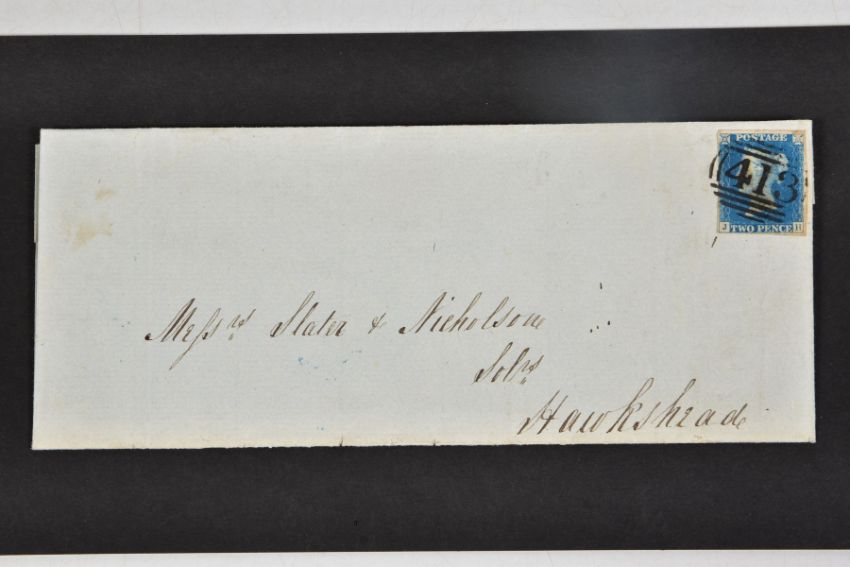 POSTAGE
413
J TWO PENCE H
Messrs. Slater & Nicholson
Solrs.
Hawkshead